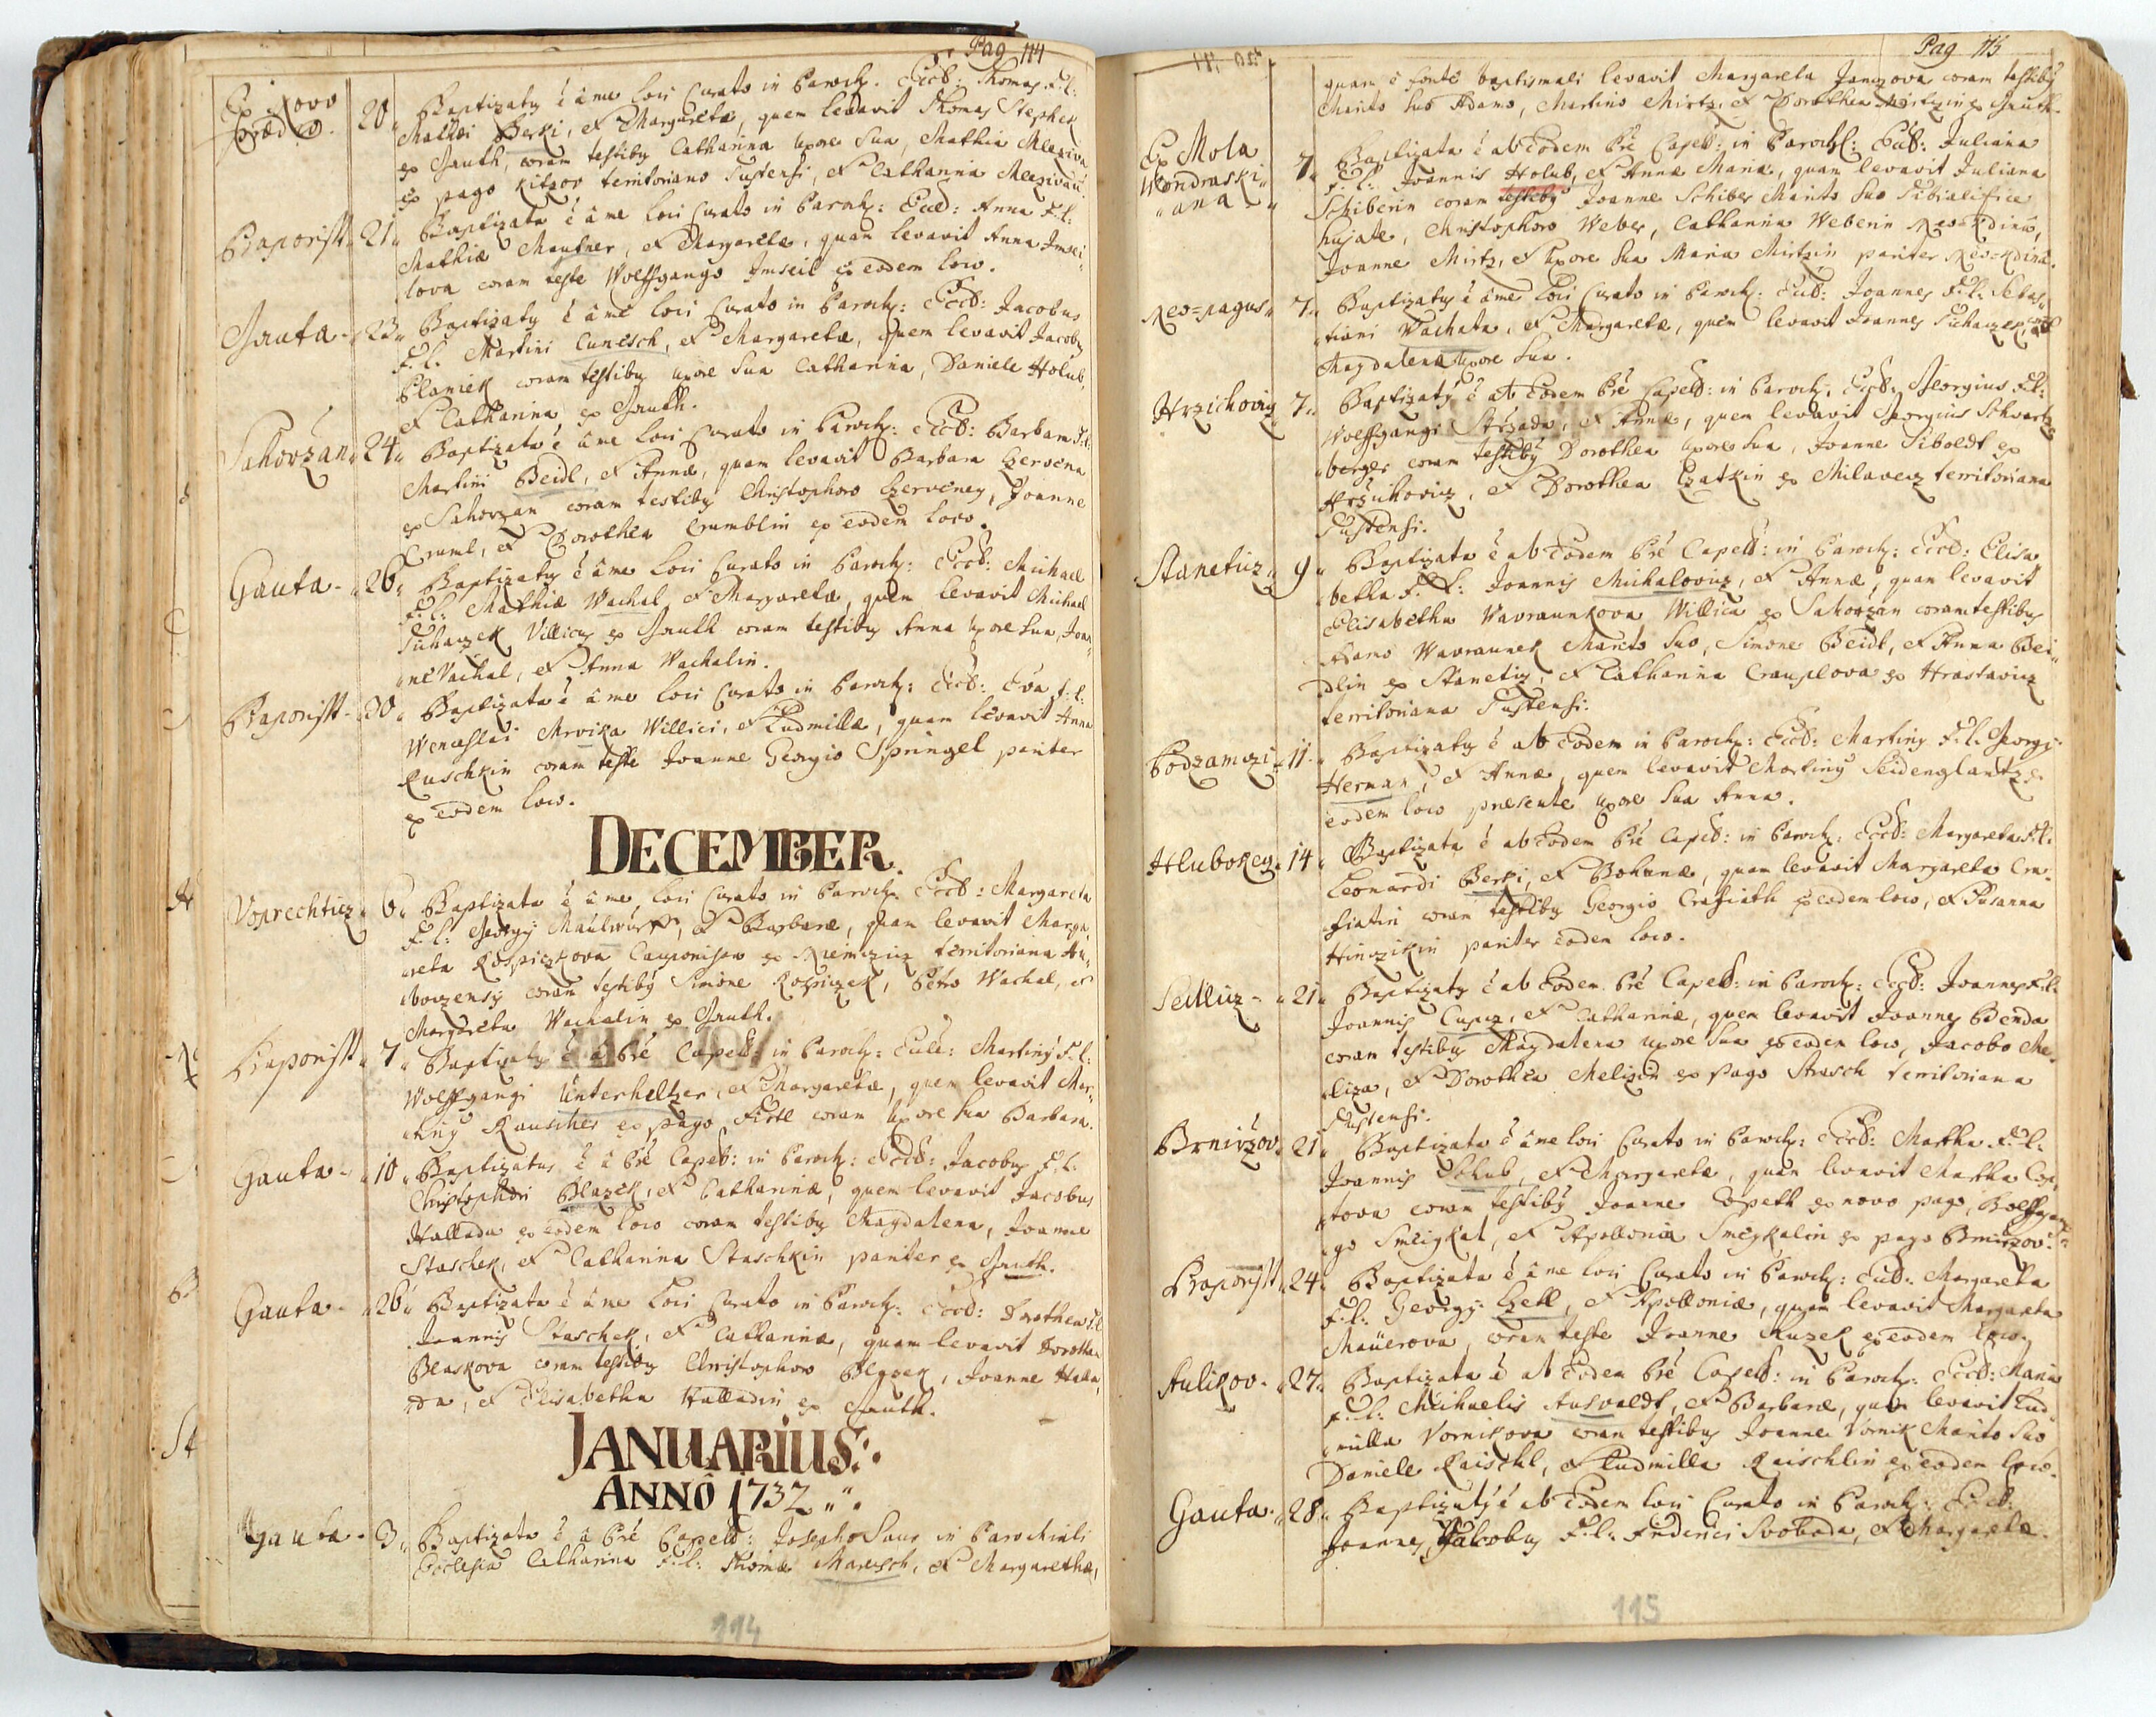 Pag 114
Ex Novo 20 Baptizatq é â me loci Curato in Paroch: Eccl: Thomas F. l:
Prædio. Mathæi Berki, et Margaretæ, quem levavit Thomas Stephek
ex Gauth, coram testibq Catharina Uxore sua, Mathia
ex pago Kitzov territoriano Tustensi, et Catharina
Baporist 21 Baptizata é â me loci Curato in Paroch: Eccl: Anna F. l:
Mathiæ Mautner, et Margaretæ, quam levavit Anna Imsei,,
lova coram teste Wolffgango Imseil ex eodem loco.
Gauta 23 Baptizatq é â me loci Curato in Paroch: Eccl: Jacobus
F. l: Martini Cunesch, et Margaretæ, quem levavit Jacobq
Planiek coram testibq uxore sua Catharina, Daniele Holub,
et Catharina ex Gauth.
Sahorzan 24 Baptizata é â me loci Curato in Paroch: Eccl: Barbara F. l:
Martini Beidl, et Annæ, quam levavit Barbara Czervena
ex Sahorzan coram testibq Christophoro Czerveney, Joanne
Cruml, et Dorothea Crumblin ex eodem loco.
Gauta 26 Baptizatq é â me loci Curato in Paroch: Eccl: Michael
F. l: Mathiæ Wachal et Margaretæ, quem levavit Michael
Suhayek Villicq ex Gauth coram testibq Anna Uxore sua, Joan,,
ne Vachal, et Anna Wachalin.
Baporist 30 Baptizata é â me loci Curato in Paroch: Eccl: Eva f. l:
Wenceslai Mrvika Willici, et Ludmillæ, quam levavit Anna
Ruschkin coram teste Joanne Georgio Springel pariter
ex eodem loco.
DECEMBER.
Voprechticz 6 Baptizata é â me loci Curato in Paroch: Eccl: Margareta
F. l: Georgij Maulwurf, et Barbaræ, quam levavit Marga,,
reta Kospiczkova Cauponissa ex Niemczicz territoriana
coram testibq Simone Kospiczek, Petro Wachal, et
Margareta Wachalin ex Gauth.
Baporist 7 Baptizatq é â Pré Capell: in Paroch: Eccl: Martinq F. l:
Wolffgangi Unterheltzer, et Margaretæ, quem levavit Mar,,
tinq Rauscher ex pago Firtl coram Uxore sua Barbara.
Gauta 10 Baptizatus é â Pré Capell: in Paroch: Eccl: Jacobq F. l:
Christophori Blazek, et Catharinæ, quem levavit Jacobus
Hallada ex eodem loco coram testibq Magdalena, Joanne
Staschek, et Catharina Staschkin pariter ex Gauth.
Gauta 26 Baptizata é â me loci Curato in Paroch: Eccl: Dorothea F. l:
Joannis Staschek, et Catharinæ, quam levavit Dorothea
Blaskova coram testibq Christophoro Blazek, Joanne Halla,,
da, et Elisabetha Halladin ex Gauth.
JANUARIUS.
ANNÔ 1732
Gauta 3 Baptizata é â Pré Capell: Josepho Saur in Parochiali
Ecclesia Catharina F. l: Thomæ Maresch, et Margarethæ,
114
Pag 115
quam é fonte baptismali levavit Margareta Janczova coram testibq
Marito suo Adamo, Martino Mirtz, et Dorothea Mirtzin ex Gauth.
Ex Mola 7 Baptizata é ab Eodem Pré Capell: in Paroch: Eccl: Juliana
Wondraski,, F. l: Joannis Holub, et Annæ Mariæ, quam levavit Juliana
ana Schiberin coram testibq Joanne Schiber Marito suo
hujate, Christophoro Weber, Catharina Weberin
Joanne Mirtz, et Uxore sua Maria Mirtzin pariter
Neo=pagus 7 Baptizatq é â me loci Curato in Paroch: Eccl: Joannes F. l: Sebas,,
tiani Wachata, et Margaretæ, quem levavit Joannes Suhayek, cum
Magdalena Uxore sua.
Hrzichowicz 7 Baptizatq é ab Eodem Pré Capell: in Paroch: Eccl: Georgius F. l:
Wolffgangi Strzada, et Annæ, quem levavit Georgius Schwartz,,
berger coram testibq Dorothea Uxore sua, Joanne Siboldt ex
Hrzichovicz, et Dorothea Czatkin ex Milavecz territoriana
Tustensi.
Staneticz 9 Baptizata é ab Eodem Pré Capell: in Paroch: Eccl: Elisa
betha F. l: Joannis Michalovicz, et Annæ, quam levavit
Elisabetha Vavraunkova Willica ex Sahorzan coram testibus
Adamo Wavraunek Marito suo, Simone Beidl, et Anna Bei,,
dlin ex Staneticz, et Catharina Crauplova ex Hrastavicz
territoriana Tustensi.
Podzamczi 11 Baptizatq é ab Eodem in Paroch: Eccl: Martinq F. l: Georgij
Herman, et Annæ, quem levavit Martinq Seidenglantz ex
eodem loco præsente Uxore sua Anna.
Hlubokey 14 Baptizata é ab Eodem Pré Capell: in Paroch: Eccl: Margareta F. l:
Leonardi Berki, et Bohunæ, quam levavit Margareta Cra,,
fiatin coram testibq Georgio Crafiath ex eodem loco, et Susanna
Hinczikin pariter eodem loco.
Sedlicz 21 Baptizatq é ab Eodem Pré Capell: in Paroch: Eccl: Joannes F. l:
Joannis Cupcz, et Catharinæ, quem levavit Joannes Benda
coram testibq Magdalena uxore sua ex eodem loco, Jacobo Me,,
liza, et Dorothea Melizin ex pago Strasch territoriana
Tustensi.
Brnirzov 21 Baptizata é â me loci Curato in Paroch: Eccl: Martha F. l:
Joannis Holub, et Margaretæ, quam levavit Martha Cop,,
tova coram testibq Joanne Copeth ex novo pago, Wolffgan,,
go Smeigkal, et Apollonia Smeykalin ex pago Brnirzov.
Baporist 24 Baptizata é â me loci Curato in Paroch: Eccl: Margareta
F. l: Georgij Czell, et Apolloniæ, quam levavit Margareta
Mauerova, coram teste Joanne Ruzek ex eodem loco.
Aulikov 27 Baptizata é ab Eodem Pré Capell: in Paroch: Eccl: Maria
F. l: Michaelis Ausvaldt, et Barbaræ, quam levavit Lud,,
milla Vornikova coram testibus Joanne Vornik Marito suo
Daniele Raischl, et Ludmilla Raischlin ex eodem loco.
Gauta 28 Baptizatq é ab Eodem loci Curato in Paroch: Eccl:
Joannes Jacobq F. l: Friderici Svoboda, et Margaretæ.
115